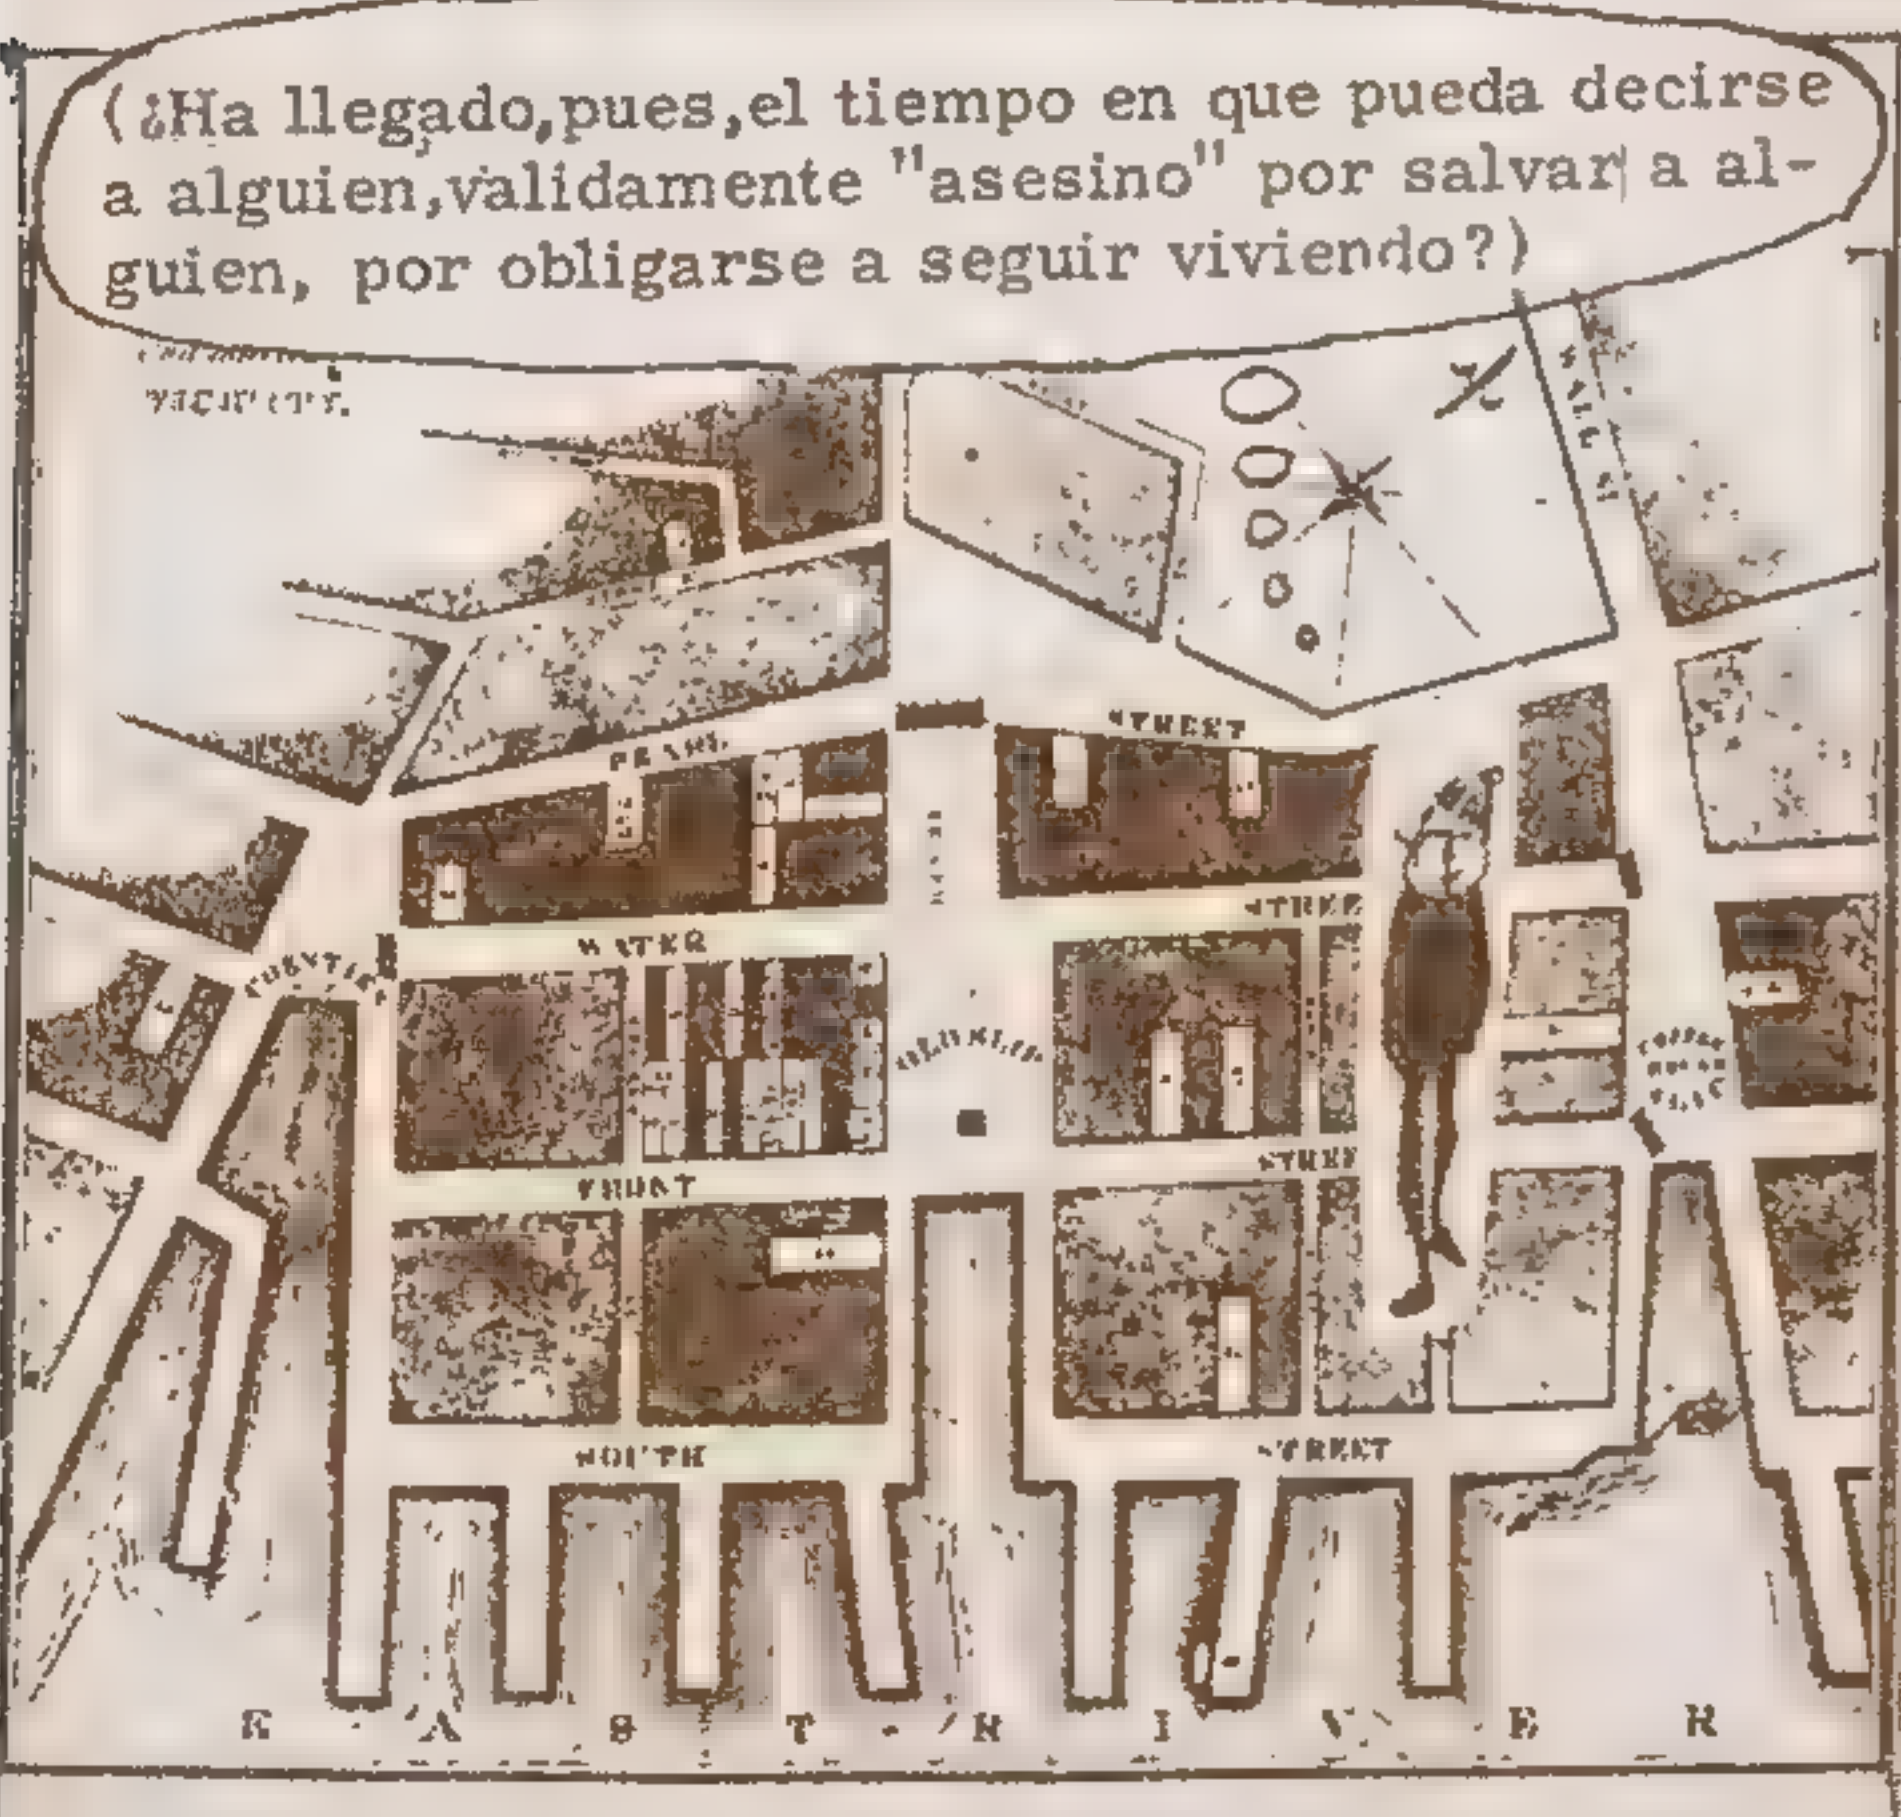 (¿Ha llegado,pues,el tiempo en que pueda decirse
a alguien,válidamente "asesino" por salvar a al-
guien, por obligarse a seguir viviendo?)
WALL ST
STREET
PEARL
STREE
WATER
OLD SLIP
COFFEE
HOUSE
SLIP
STREE
FRONT
SOUTH
STREET
EAST RIVER